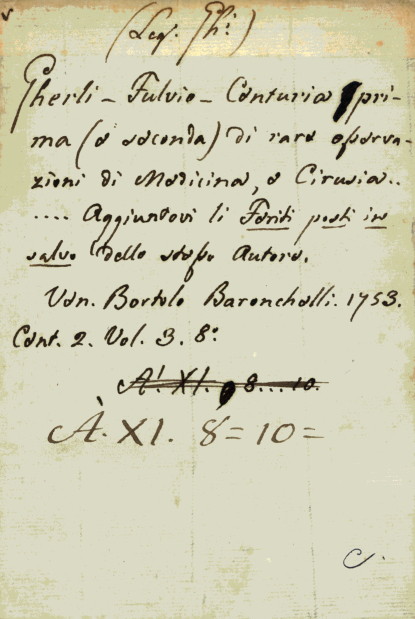 (Leg. Ghi.)
Gherli - Fulvio - Centuria pri-
ma (e seconda) di rare osserva-
zioni di Medicina, e Cirusia..
.... Aggiuntovi li Feriti posti in
salvo dello stesso Autore.
Ven. Bortolo Baronchelli. 1753.
Cent. 2. Vol. 3. 8º
A'. XI. 8...10.
À. XI. 8=10=
C.